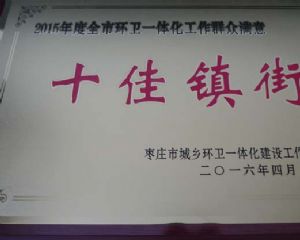 2015年度全市环卫一体化工作群众满意
十佳镇街
枣庄市城乡环卫一体化建设工作
二〇一六年四月